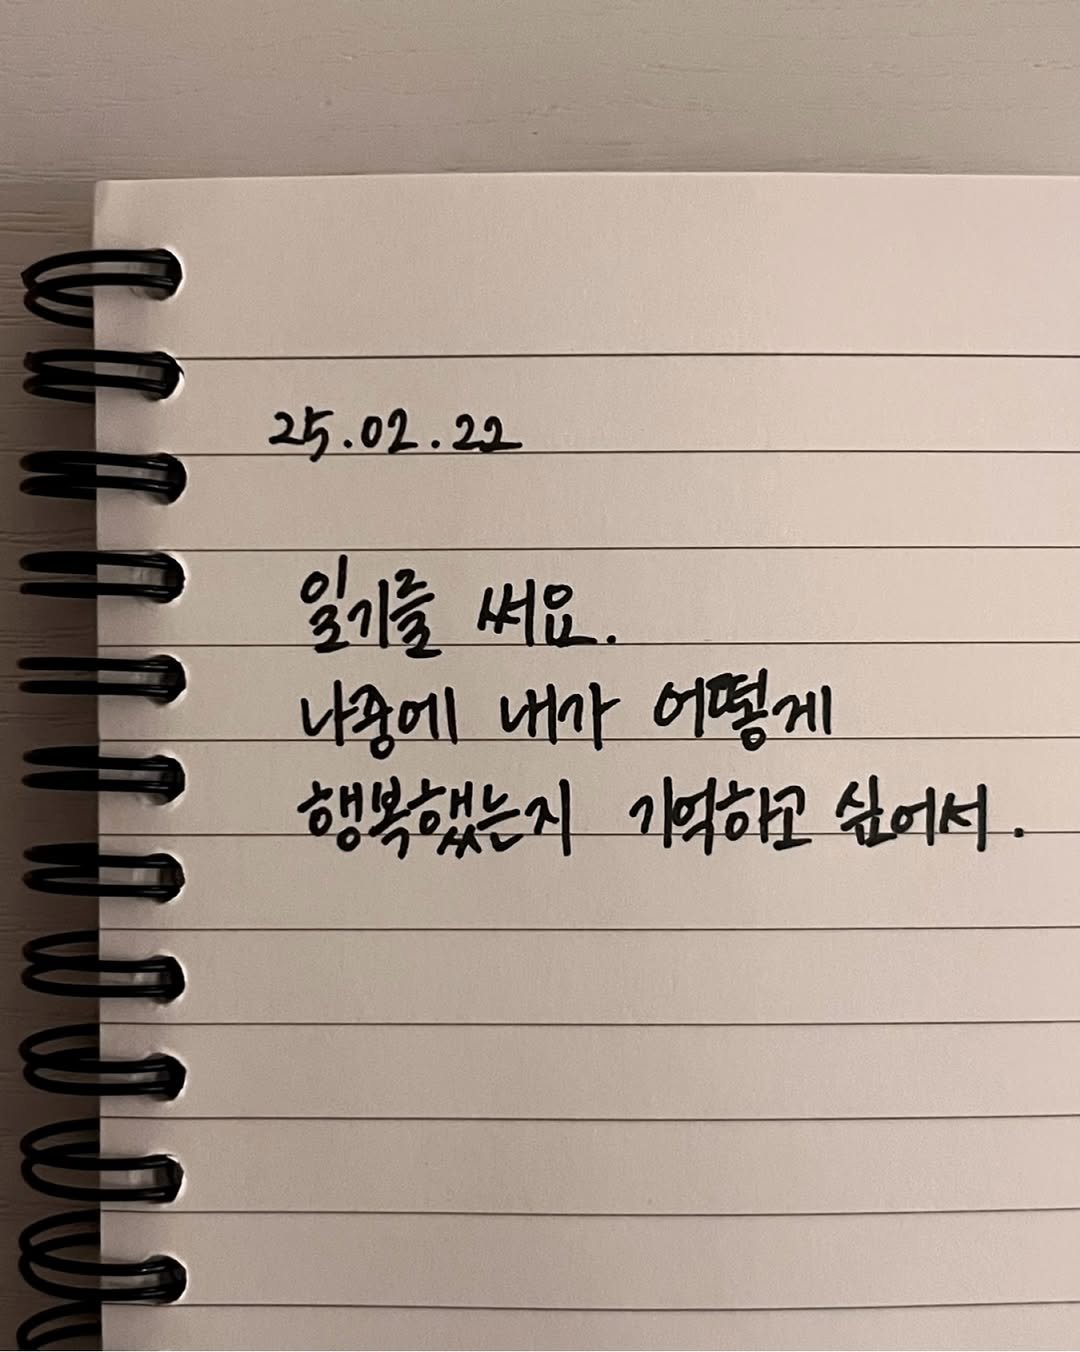 25.02.22
일기를 써요.
나중에 내가 어떻게
행복했는지 기억하고 싶어서.